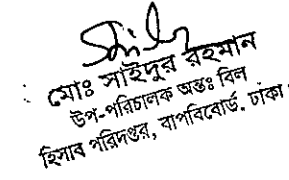 মোঃ সাইদুর রহমান
উপ-পরিচালক অন্তঃ বিল
হিসাব পরিদপ্তর, বাপবিবোর্ড. ঢাকা